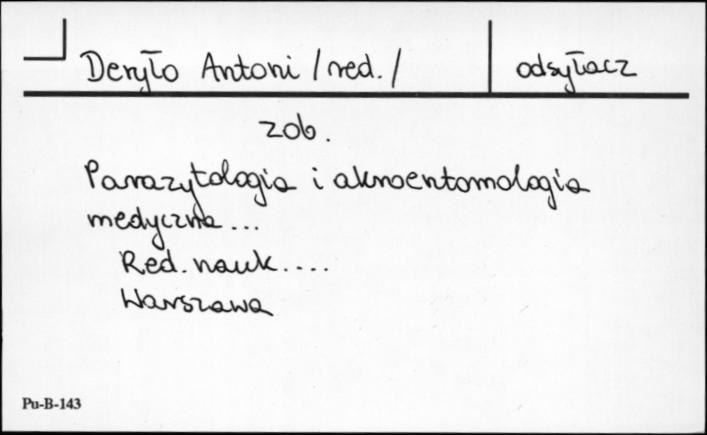 Deryło Antoni /red./ odsyłacz
zob.
Parazytologia i akaroentomologia
medyczna...
Red. nauk....
Warszawa
Pu-B-143